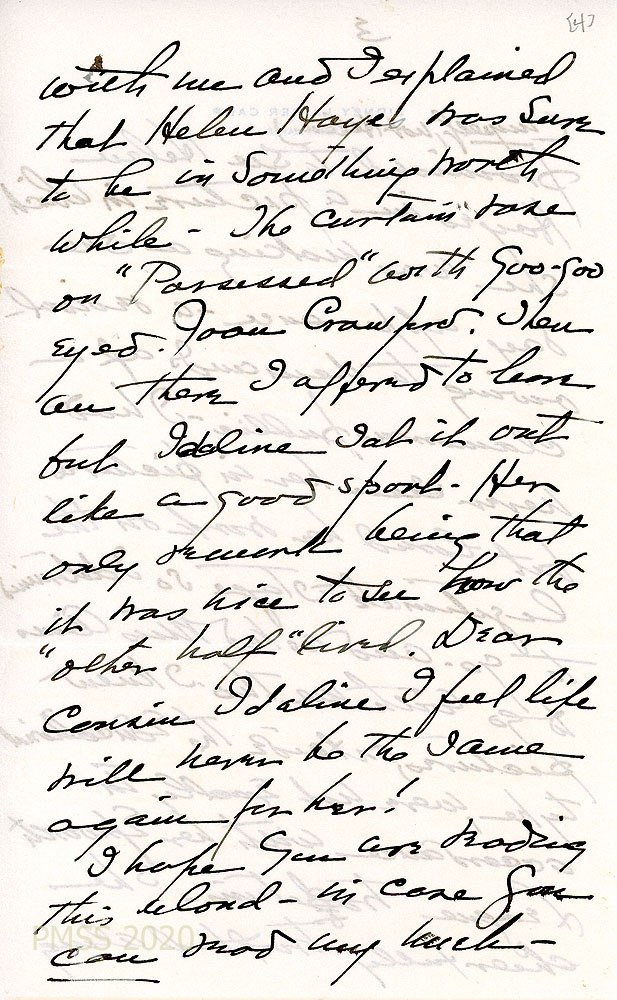 [4]
with me and I explained
that Helen Hayes was sure
to be in something worth
while - The curtain rose
on "Possessed" with Goo-goo
eyed. Joan Crawford. Then
and there I offered to leave
but Idaline sat it out
like a good sport - Her
only remark being that
it was nice to see how the
"other half" lived. Dear
Cousin Idaline I feel life
will never be the same
again for her!
I hope you are reading
this aloud - in case you
can read my much -
PMSS 2020